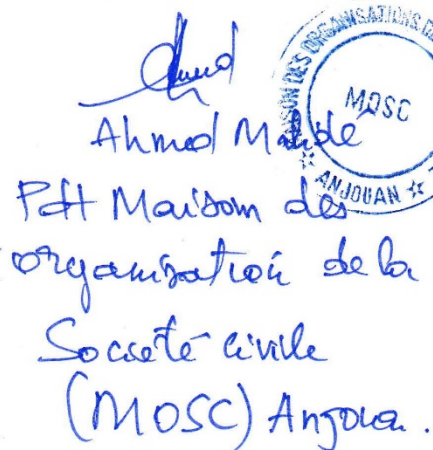 Ahmed
MAISON DES ORGANISATIONS DE
MOSC
ANJOUAN
Pdt Maison des
organisation de la
Société civille
(MOSC) Anjoua.